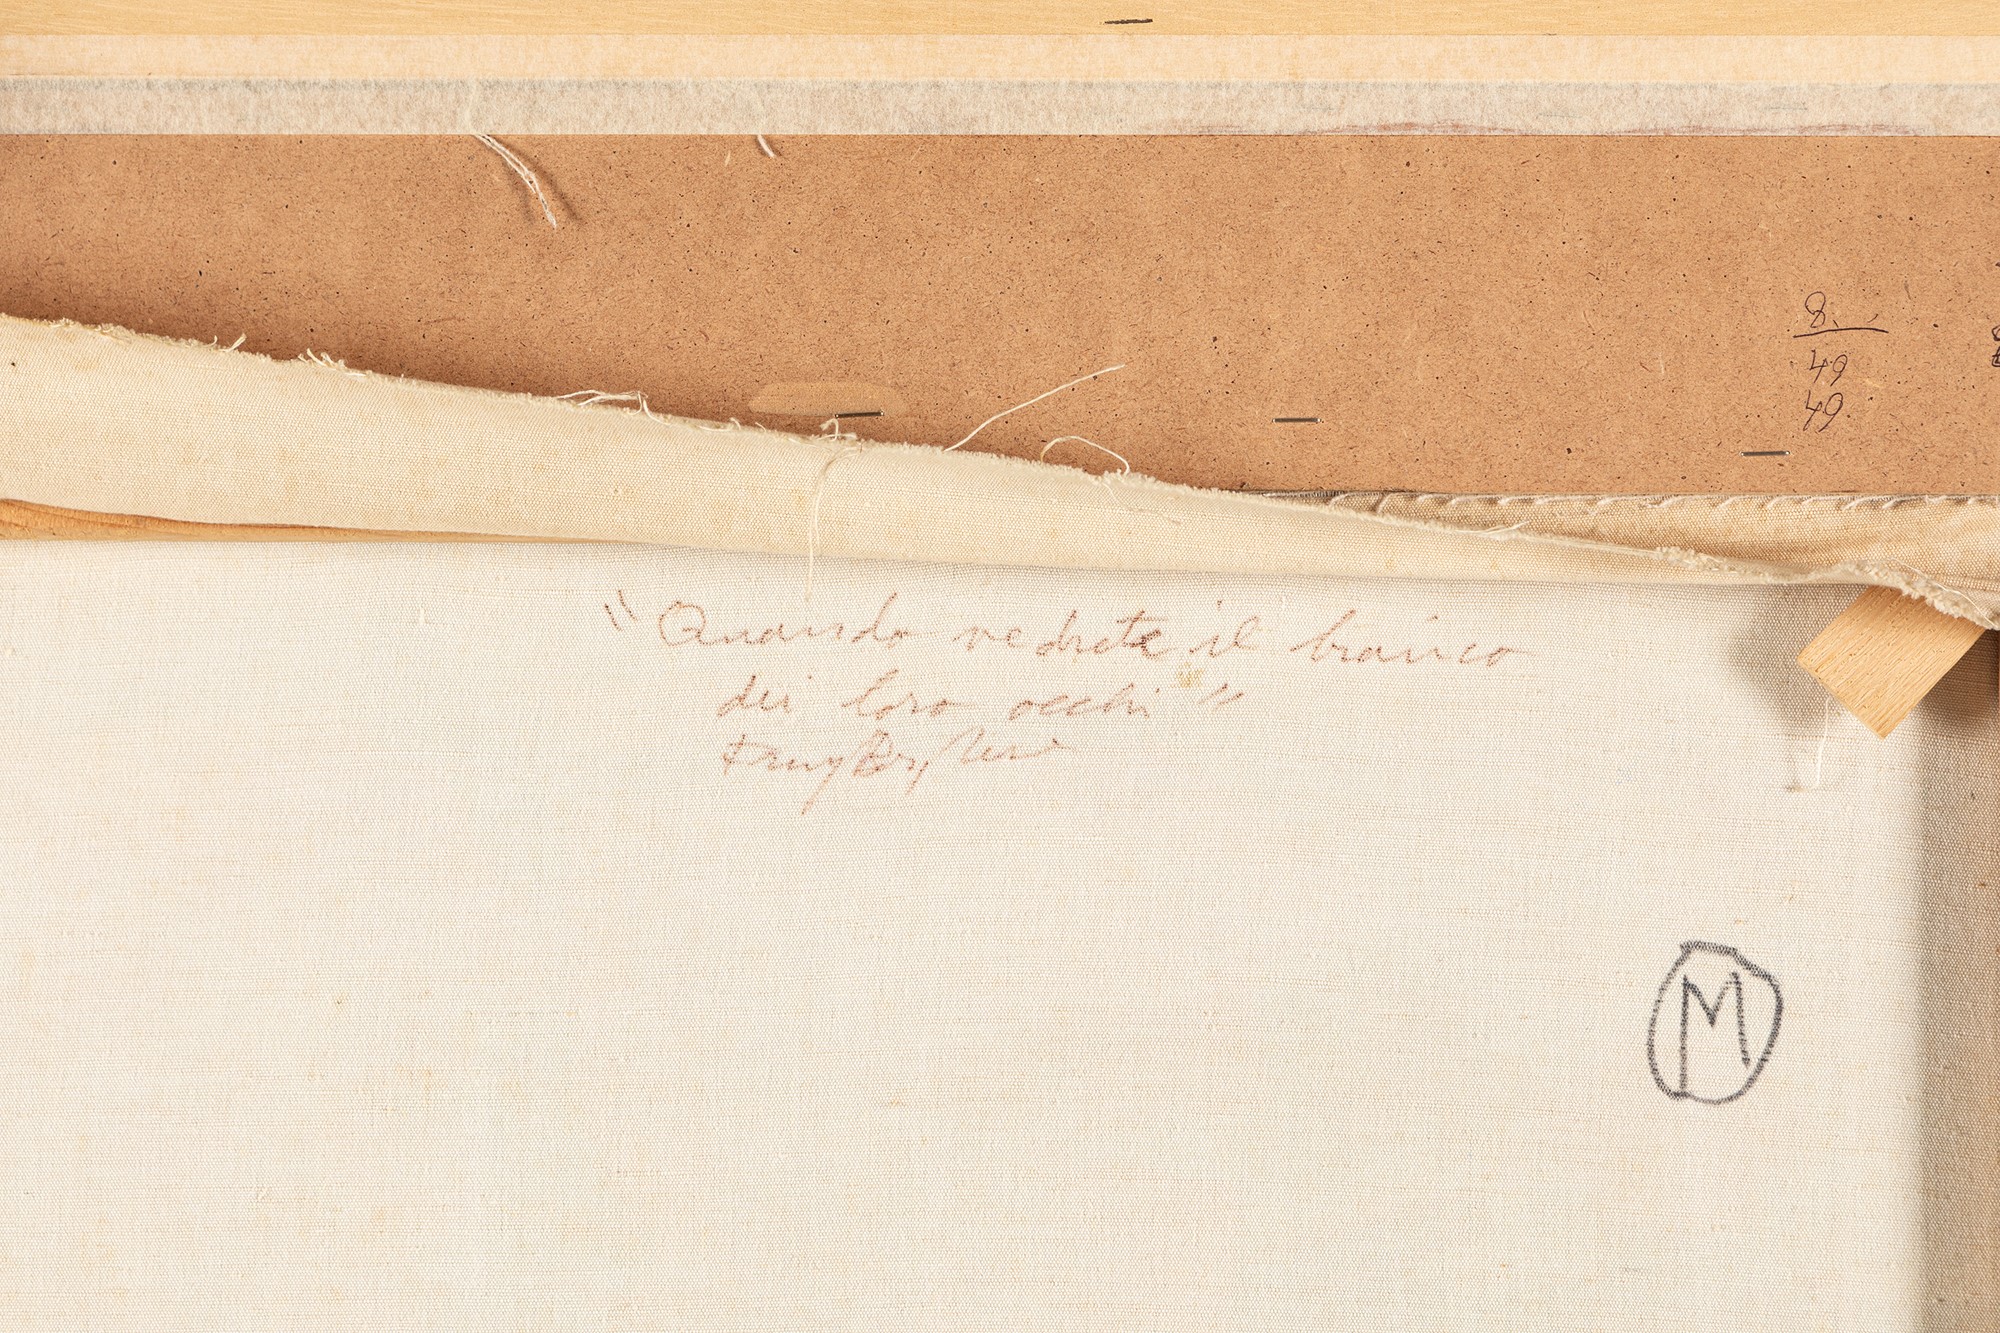 8.
49
49
"Quando vedrete il bianco
dei loro occhi"
M